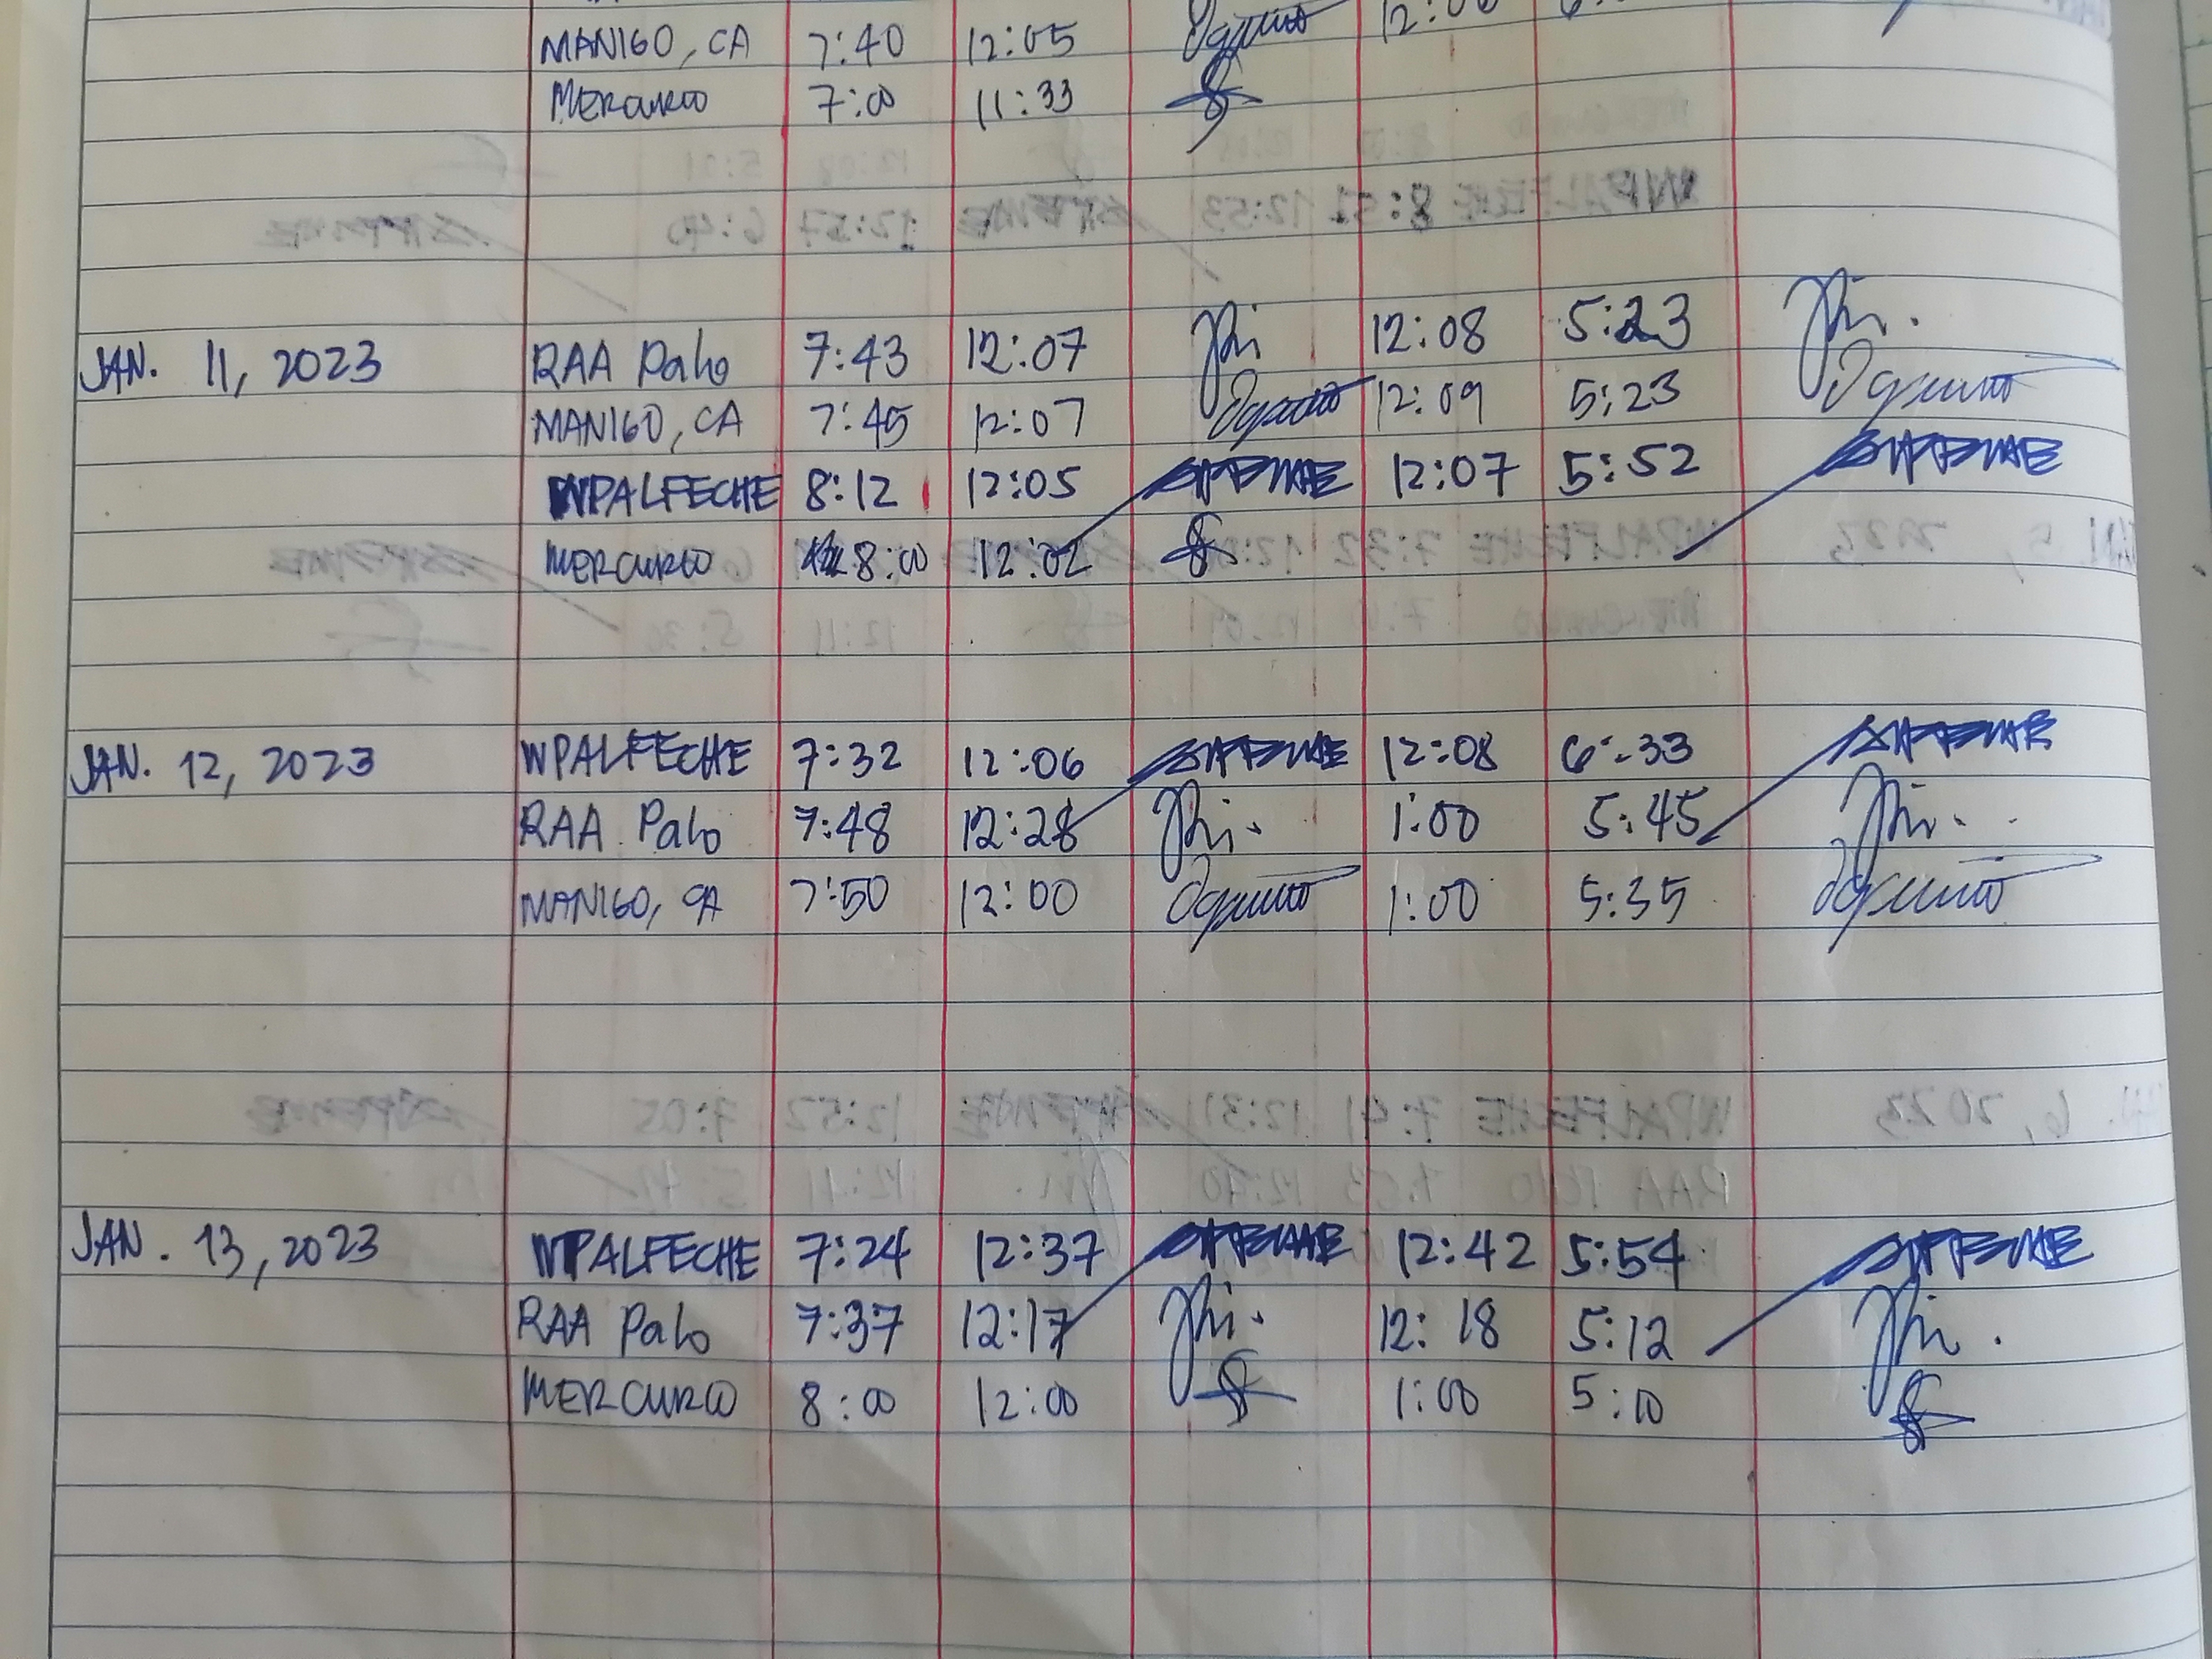 MANIGO, CA 7:40 12:05
MERCURIO 7:00 11:33
JAN. 11, 2023 RAA Palo 7:43 12:07 12:08 5:23
MANIGO, CA 7:45 12:07 12:09 5:23
WPALFECHE 8:12 12:05 12:07 5:52
MERCURIO 8:00 12:02
JAN. 12, 2023 WPALFECHE 7:32 12:06 12:08 6:33
RAA Palo 7:48 12:28 1:00 5:45
MANIGO, CA 7:50 12:00 1:00 5:35
JAN. 13, 2023 WPALFECHE 7:24 12:37 12:42 5:54
RAA Palo 7:37 12:17 12:18 5:12
MERCURIO 8:00 12:00 1:00 5:10